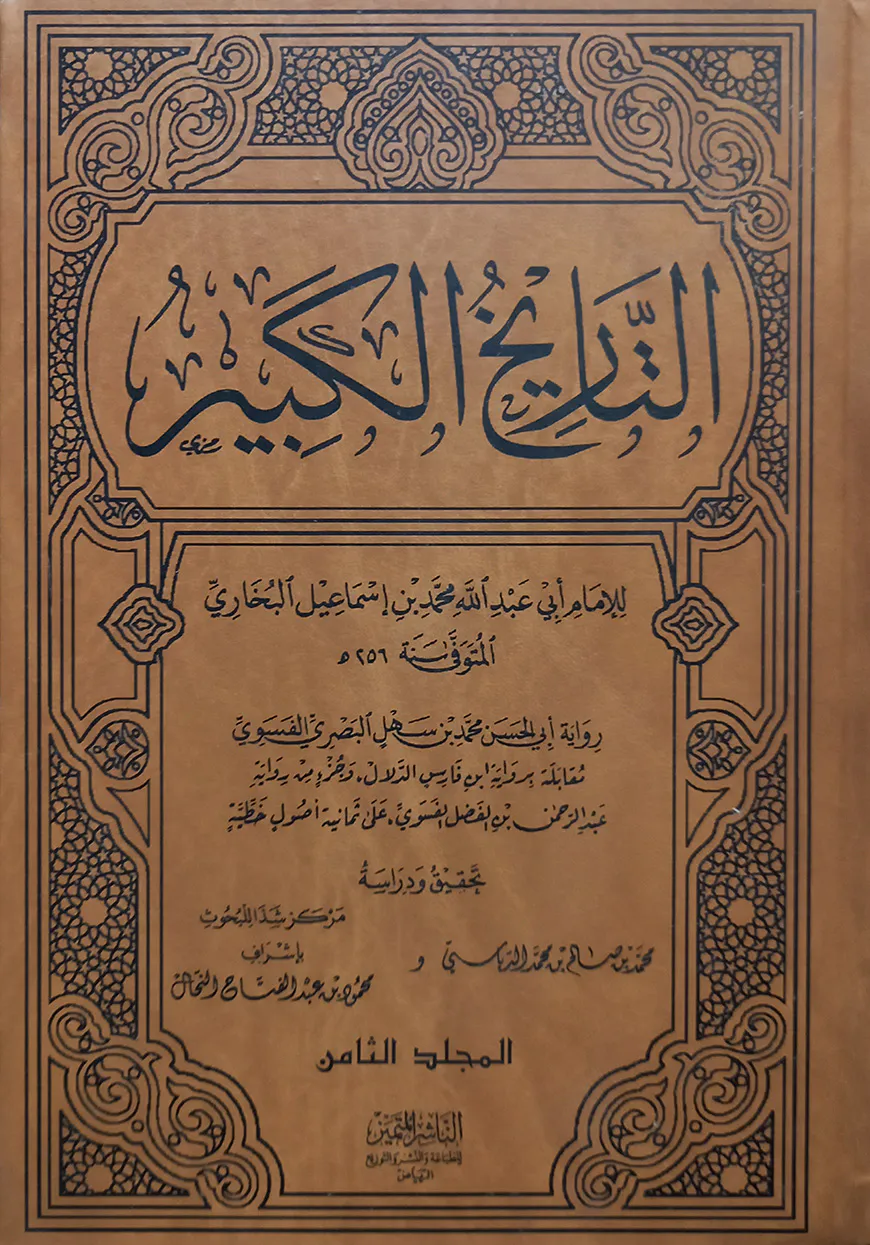 التَّارِيخُ الكَبِير
رمزي
لِلإِمَامِ أَبِي عَبْدِ اللَّهِ مُحَمَّدِ بْنِ إِسْمَاعِيلَ البُخَارِيِّ
المُتَوَفَّى سَنَة ٢٥٦ هـ
رِوَايَة أَبِي الحَسَن مُحَمَّد بْن سَهْلٍ البَصْرِيِّ الفَسَوِيِّ
مُقَابَلَة بِرِوَايَةِ ابنِ فَارِسٍ الدَّلال، وَجُزْءٍ مِن رِوَايَةِ
عَبْدِ الرَّحْمٰن بْنِ الفَضْل الفَسَوِيِّ، عَلَى ثَمَانِيَةِ أُصُولٍ خَطِّيَّةٍ
تَحْقِيقُ وَدِرَاسَةُ
مَرْكَز شَذَا لِلْبُحُوثِ
بِإِشْرَافِ
محمد بن صالح بن محمد الدباسي و
محمود بن عبد الفتاح النحال
المجلد الثامن
الناشر المتميز
للطباعة والنشر والتوزيع
الرياض